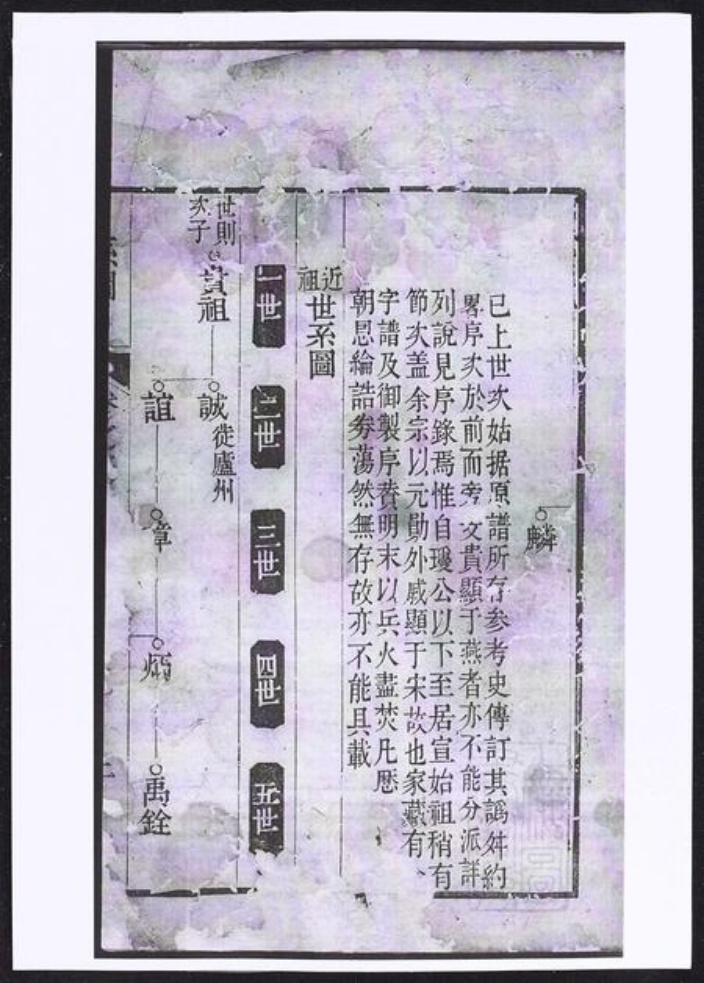 麟
已上世次姑据原譜所存参考史傳訂其譌舛約
畧序次於前而旁文貴顯于燕者亦不能分派詳
列說見序錄焉惟自瓊公以下至居宣始祖稍有
節次盖余宗以元勛外戚顯于宋故也家藏有
字譜及御製序賛明末以兵火盡焚凡歷
朝恩綸誥券蕩然無存故亦不能具載
近祖世系圖
一世
二世
三世
四世
五世
世則次子
祖
誠徙廬州
誼
章
炳
禹銓